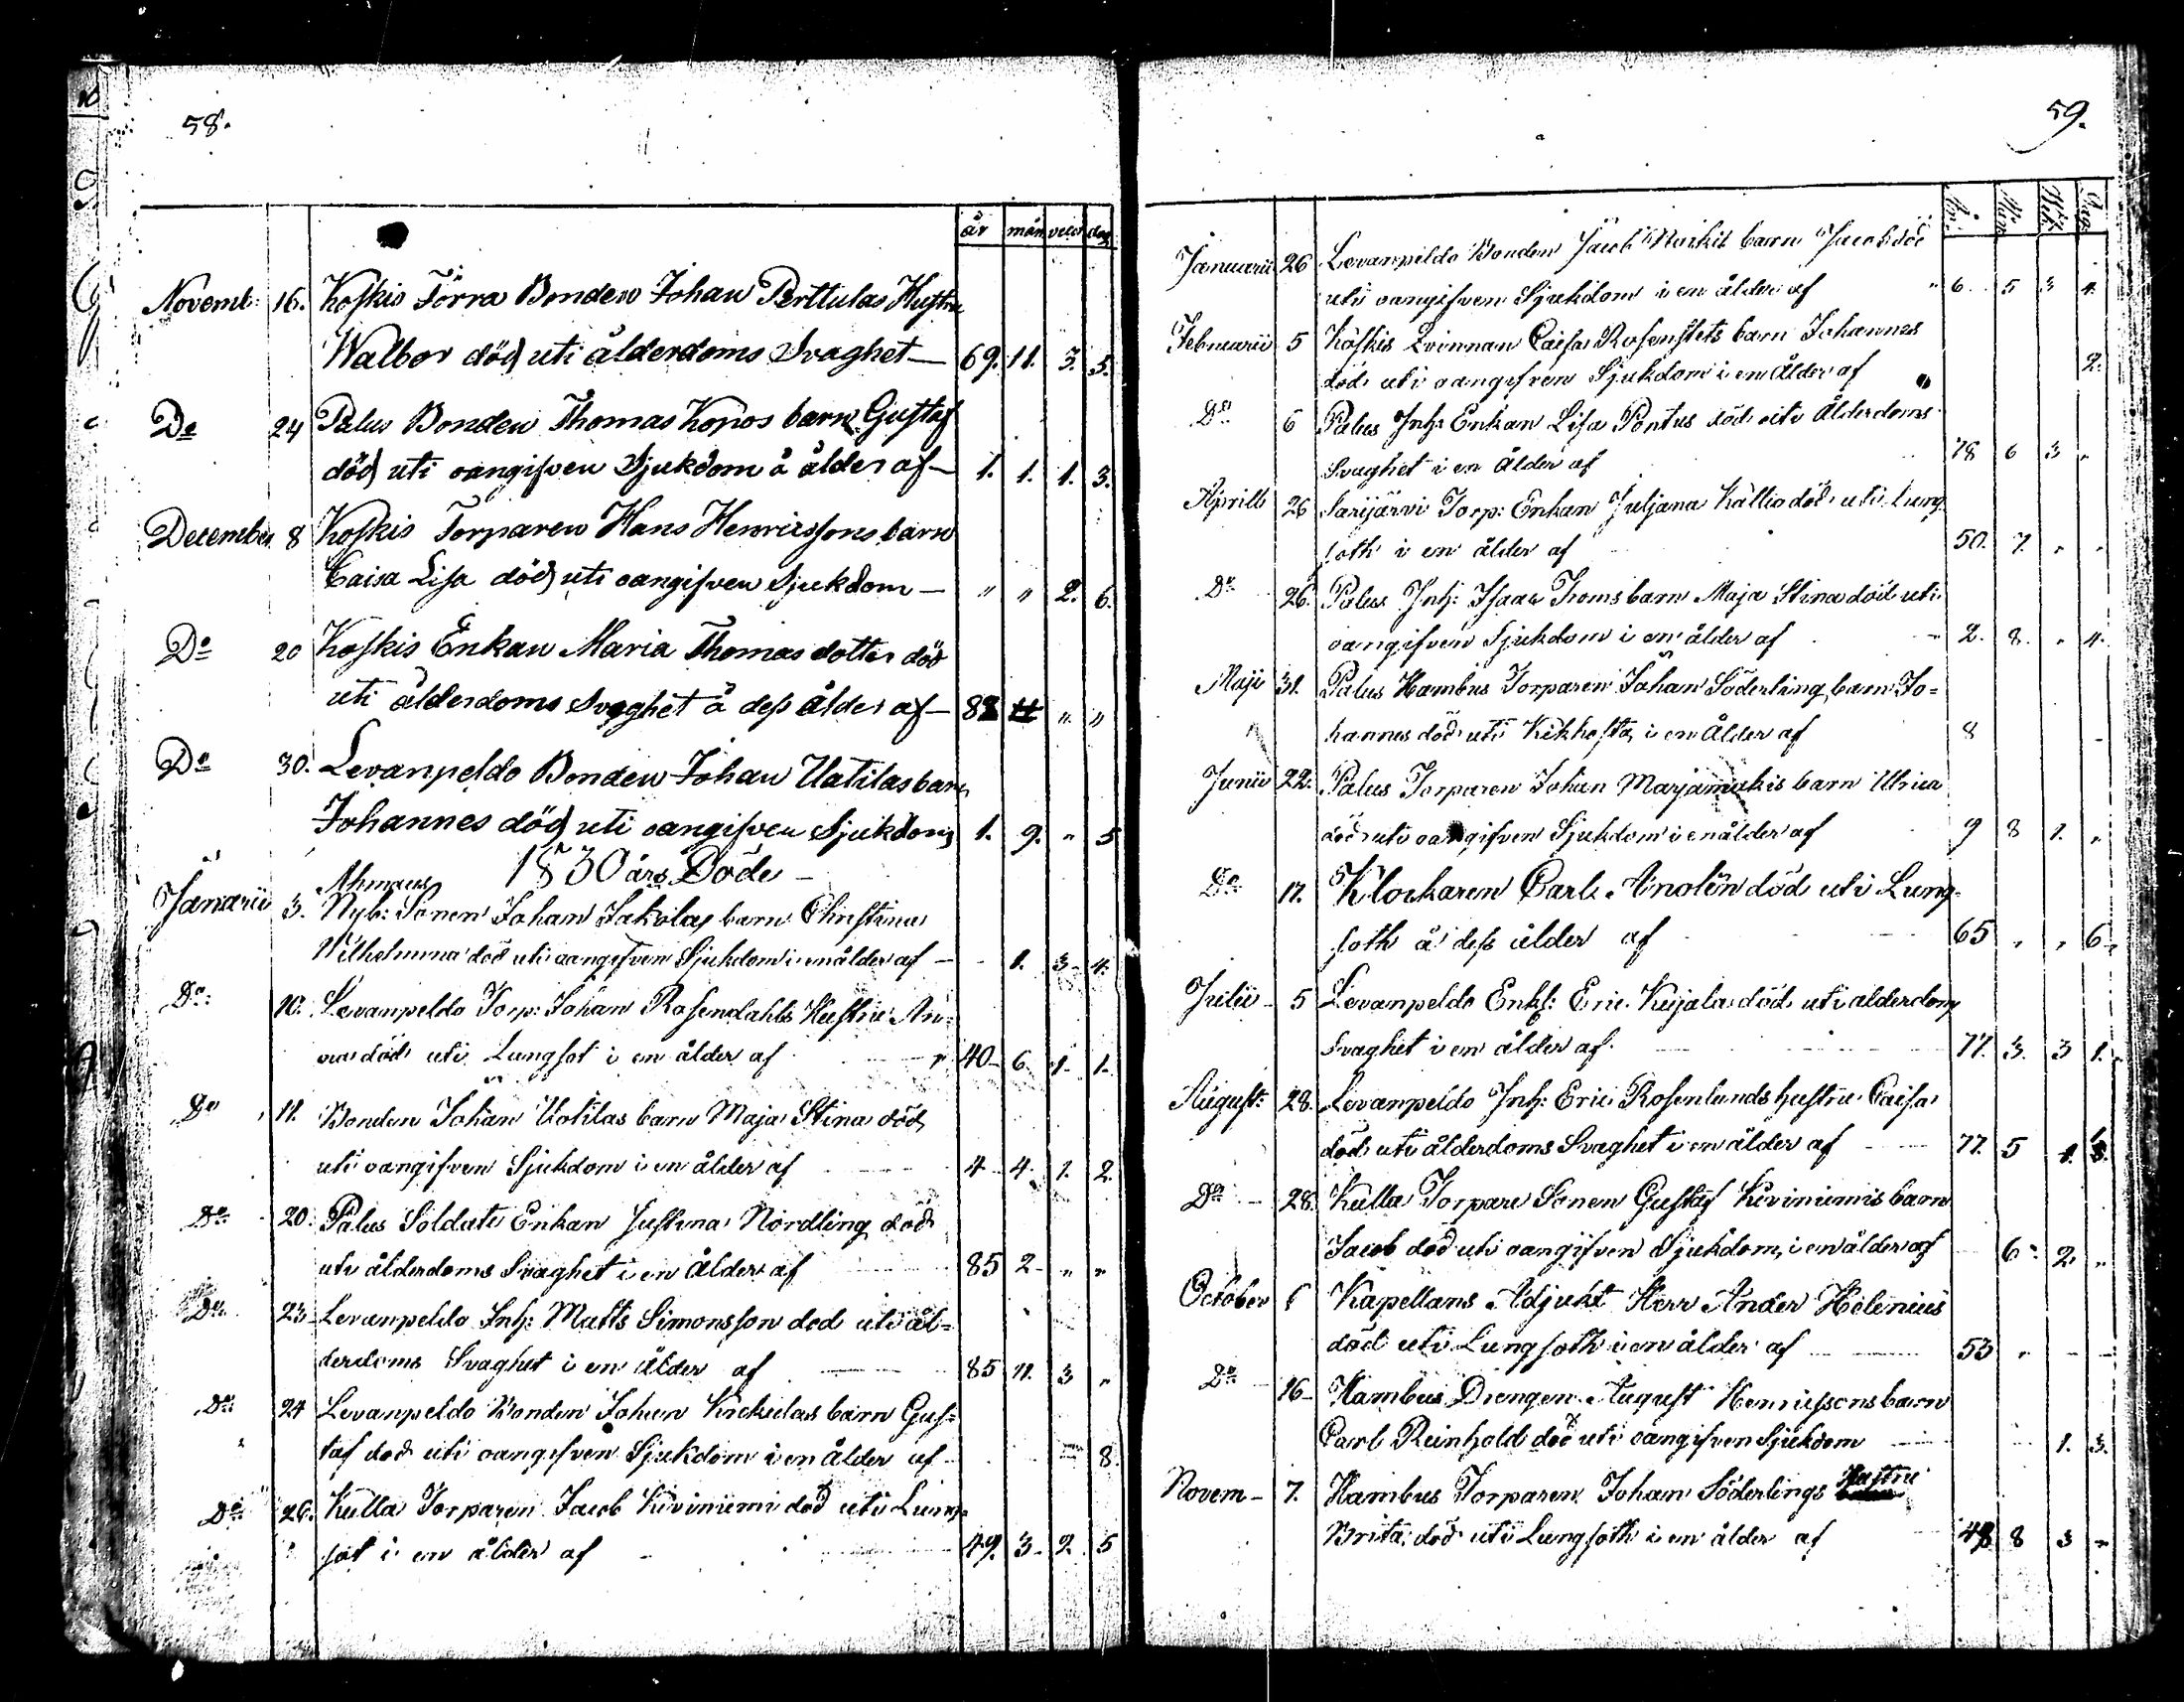 58.
år mån veck dag
Novemb: 16. Koskis Förra Bonden Johan Perttulas Hustru
Walbor död uti ålderdoms Svaghet — 69. 11. 3. 5.
Do 24 Palus Bonden Thomas Kopos barn Gustaf
död uti oangifven Sjukdom å ålder af — 1. 1. 1. 3.
December 8 Koskis Torparen Hans Henricssons barn
Caisa Lisa död uti oangifven Sjukdom — " " 2. 6.
Do 20 Koskis Enkan Maria Thomas dotter död
uti ålderdoms Svaghet å dess ålder af — " "
Do 30. Levanpeldo Bonden Johan Uatilas barn
Johannes död uti oangifven Sjukdom 1. 9. " 5
1830 års Döde —
Januarii 3. Nyb: Sonen Johan Jakolas barn Christina
Wilhelmina död uti oangifven Sjukdom i en ålder af — - 1. 3- 4.
Do: 10. Levanpeldo Torp: Johan Rosendahls Hustru An=
na död uti Lungsot i en ålder af 40- 6 1- 1-
Do 11. Bonden Johan Uotilas barn Maja Stina död
uti oangifven Sjukdom i en ålder af 4- 4- 1. 2.
Do 20. Palus Soldats Enkan Justina Nordling död
uti ålderdoms Svaghet i en ålder af 85 2- " "
Do 23- Levanpeldo Inh: Matts Simonsson död uti ål=
derdoms Svaghet i en ålder af 85 11. 3 "
Do 24 Levanpeldo Bonden Johan Krekulas barn Gus=
taf död uti oangifven Sjukdom i en ålder af - 8.
Do 26. Kulla Torparen Jacob Kiviniemi död uti Lung=
sot i en ålder af 49. 3- 2. 5
59.
Januarii 26 Levanpeldo Bonden Jacob barn Jacob död
uti oangifven Sjukdom i en ålder af 6. 5 3 4.
Februarii 5 Koskis Qvinnan Caisa Rosenstets barn Johannes
död uti oangifven Sjukdom i en Ålder af 2.
Do 6 Palus Inh: Enkan Lisa Pontus död uti Ålderdoms
Svaghet i en Ålder af 78 6 3 "
Aprill 26 Sarijärvi Torp: Enkan Juljana Kallio död uti Lung
soth i en ålder af 50. 7. " "
Do 26. Palus Inh: Isaac Troms barn Maja Stina död uti
oangifven Sjukdom i en ålder af 2. 8. " 4.
Maji 31. Palus Hambus Torparen Johan Söderling barn Jo=
hannes död uti Kikhosta i en Ålder af 8 -
Junii 22. Palus Torparen Johan Marjamäkis barn Ulrica
död uti oangifven Sjukdom i en ålder af 9 8 1. "
Do 17. Klockaren Carl Anolin död uti Lung=
soth å dess ålder af 65 " " 6.
Julii - 5 Levanpeldo Enkl: Eric Kujala död uti ålderdoms
Svaghet i en ålder af 77. 3. 3 1.
August: 28. Levanpeldo Inh: Eric Rosenlunds hustru Caisa
död uti ålderdoms Svaghet i en ålder af 77. 5
Do - 28. Kulla Torpare Sonen Gustaf Kiviniemis barn
Jacob död uti oangifven Sjukdom, i en ålder af 6- 2. "
October Kapellans Adjukt Herr Ander Helenius
död uti Lungsoth i en ålder af 53 " - -
Do - 16- Hambus Drengen August Henricssons barn
Carl Reinhold död uti oangifven Sjukdom 1. 3.
Novem - 7. Hambus Torparen Johan Söderlings Hustru
Brita död uti Lungsoth i en ålder af 48 8 3 "